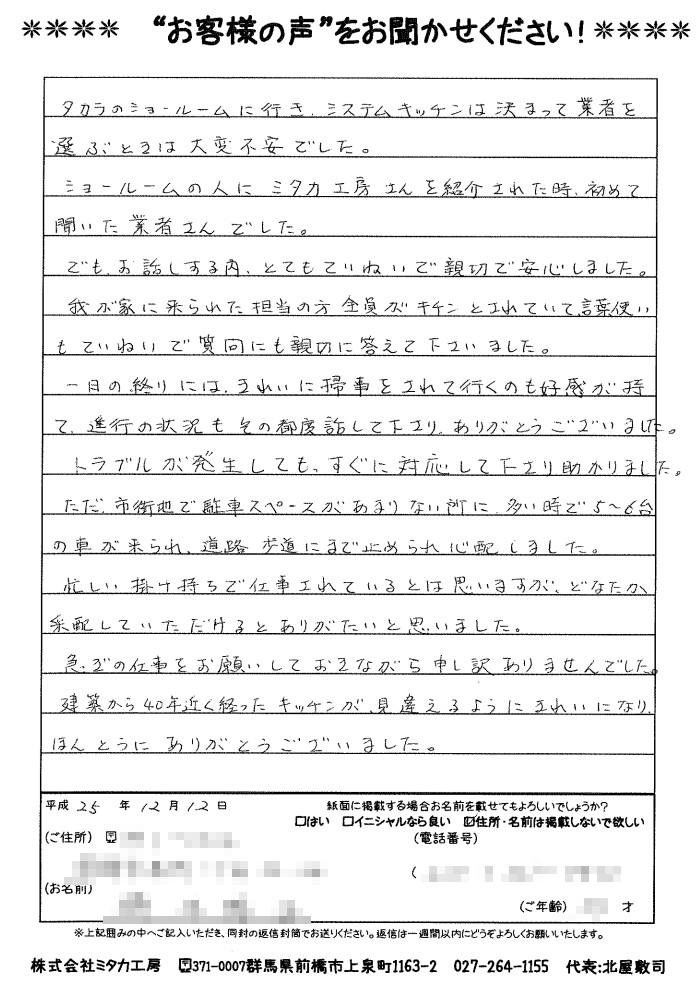 **** “お客様の声”をお聞かせください! ****
タカラのショールームに行き、システムキッチンは決まって業者を
選ぶときは大変不安でした。
ショールームの人にミタカ工房さんを紹介された時、初めて
聞いた業者さんでした。
でも、お話しする内、とてもていねいで親切で安心しました。
我が家に来られた担当の方全員がキチンとされていて、言葉使い
もていねいで質問にも親切に答えて下さいました。
一日の終りには、きれいに掃事をされて行くのも好感が持
て、進行の状況もその都度話して下さり、ありがとうございました。
トラブルが発生しても、すぐに対応して下さり助かりました。
ただ、市街地で駐車スペースがあまりない所に、多い時で5～6台
の車が来られ、道路 歩道にまで止められ心配しました。
忙しい掛け持ちで仕事されているとは思いますが、どなたか
采配していただけるとありがたいと思いました。
急ぎの仕事をお願いしておきながら申し訳ありませんでした。
建築から40年近く経ったキッチンが、見違えるようにきれいになり、
ほんとうにありがとうございました。
平成 25 年 12 月 12 日 紙面に掲載する場合お名前を載せてもよろしいでしょうか?
□はい □イニシャルなら良い ☑住所・名前は掲載しないで欲しい
(ご住所) 〒 (電話番号)
(
(お名前)
(ご年齢) 才
※上記囲みの中へご記入いただき、同封の返信封筒でお送りください。返信は一週間以内にどうぞよろしくお願いいたします。
株式会社ミタカ工房 〒371-0007群馬県前橋市上泉町1163-2 027-264-1155 代表:北屋敷司